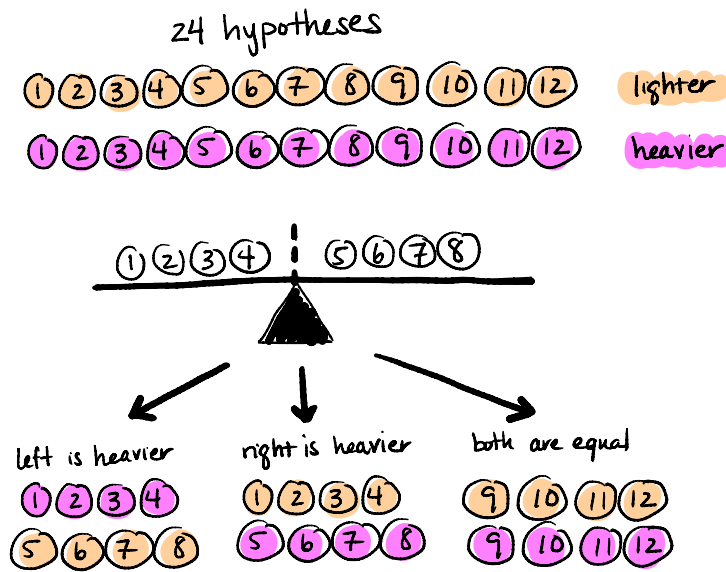 24 hypotheses
1 2 3 4 5 6 7 8 9 10 11 12 lighter
1 2 3 4 5 6 7 8 9 10 11 12 heavier
1 2 3 4 5 6 7 8
left is heavier
1 2 3 4
5 6 7 8
right is heavier
1 2 3 4
5 6 7 8
both are equal
9 10 11 12
9 10 11 12